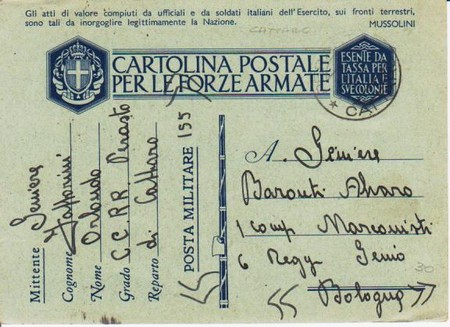 Gli atti di valore compiuti da ufficiali e da soldati italiani dell'Esercito, sui fronti terrestri,
sono tali da inorgoglire legittimamente la Nazione. MUSSOLINI
CATTARO
CARTOLINA POSTALE
PER LE FORZE ARMATE
ESENTE DA
TASSA PER
L'ITALIA E
SVE COLONIE
Mittente Geniere
Cognome
Nome Orlando
Grado C.C.R.R. Perasto
Reparto di Cattaro
POSTA MILITARE 155
A. Geniere
Baronti Alvaro
1 Comp Marconisti
6 Regg Genio
Bologna
55
30